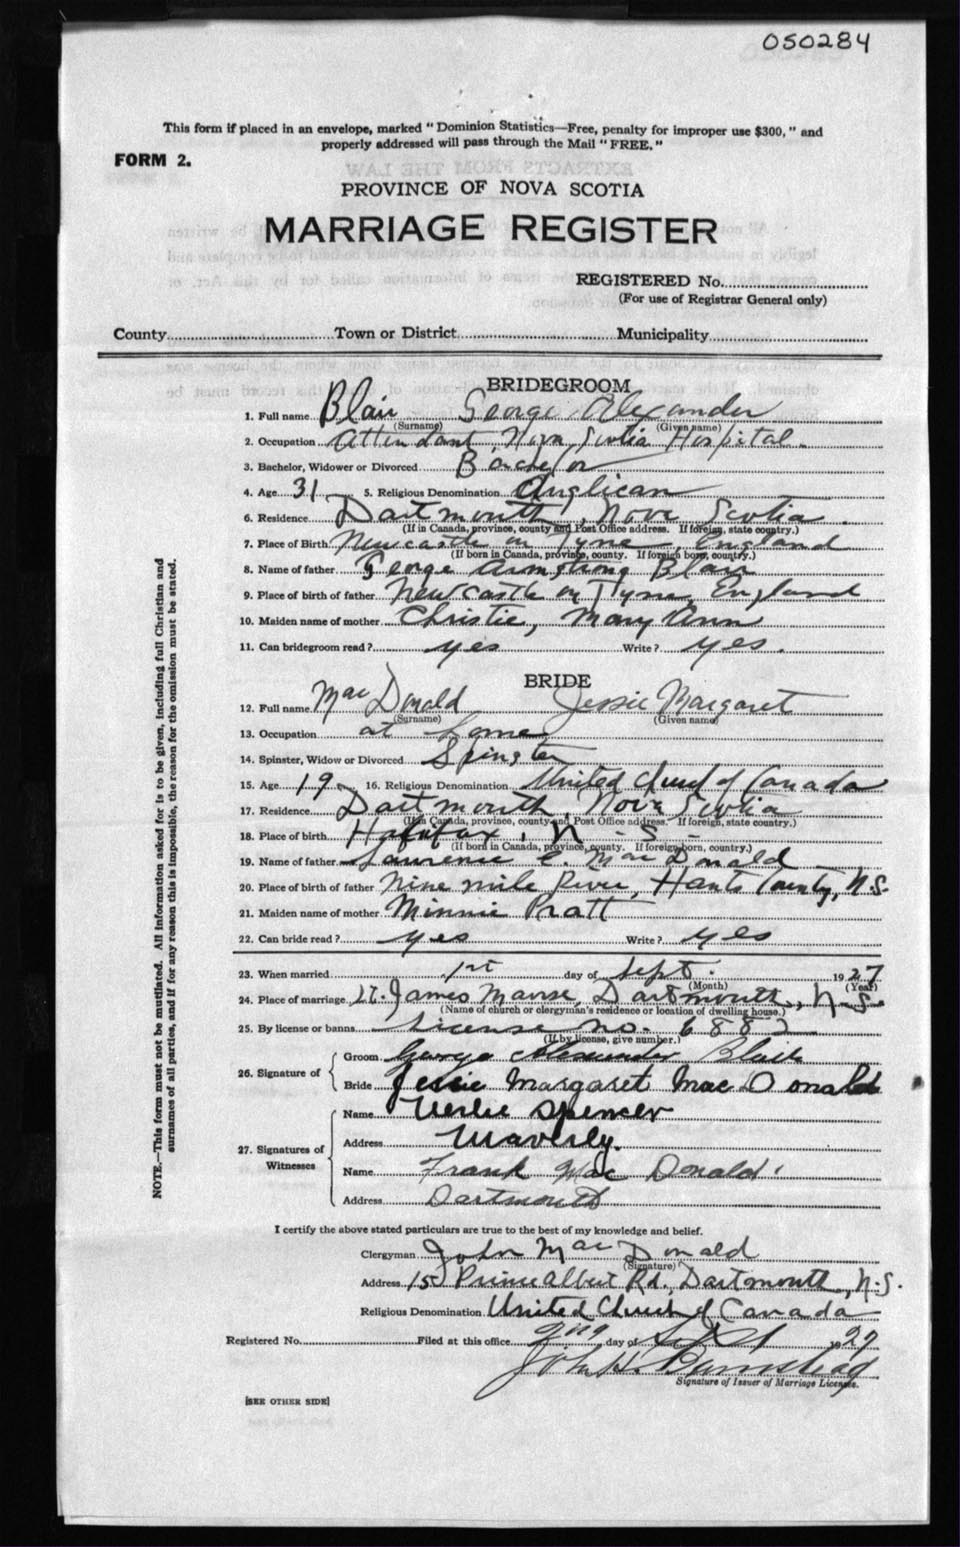 050284
This form if placed in an envelope, marked "Dominion Statistics—Free, penalty for improper use $300," and
properly addressed will pass through the Mail "FREE."
FORM 2.
PROVINCE OF NOVA SCOTIA
MARRIAGE REGISTER
REGISTERED No.
(For use of Registrar General only)
County Town or District Municipality
BRIDEGROOM
1. Full name Blair George Alexander
(Surname) (Given name)
2. Occupation Attendant, Nova Scotia Hospital.
3. Bachelor, Widower or Divorced Bachelor
4. Age 31 5. Religious Denomination Anglican
6. Residence Dartmouth, Nova Scotia.
(If in Canada, province, county and Post Office address. If foreign, state country.)
7. Place of Birth Newcastle on Tyne, England
(If born in Canada, province, county. If foreign born, country.)
8. Name of father George Armstrong Blair
9. Place of birth of father Newcastle on Tyne, England
10. Maiden name of mother Christie, Mary Ann
11. Can bridegroom read? yes Write? yes.
BRIDE
12. Full name MacDonald Jessie Margaret
(Surname) (Given name)
13. Occupation at home
14. Spinster, Widow or Divorced Spinster
15. Age 19 16. Religious Denomination United Church of Canada
17. Residence Dartmouth, Nova Scotia
(If in Canada, province, county and Post Office address. If foreign, state country.)
18. Place of birth Halifax, N-S-
(If born in Canada, province, county. If foreign born, country.)
19. Name of father Laurence C. MacDonald
20. Place of birth of father Nine mile River, Hants County, N.S.
21. Maiden name of mother Minnie Pratt
22. Can bride read? yes Write? yes
23. When married 1st day of Sept. 1927
(Month) (Year)
24. Place of marriage St. James Manse, Dartmouth, N-S-
(Name of church or clergyman's residence or location of dwelling house.)
25. By license or banns License no. 6882
(If by license, give number.)
26. Signature of
Groom George Alexander Blair
Bride Jessie Margaret MacDonald
27. Signatures of Witnesses
Name Spencer
Address Waverly.
Name Frank MacDonald.
Address Dartmouth
I certify the above stated particulars are true to the best of my knowledge and belief.
Clergyman John MacDonald
(Signature)
Address 15 Prince Albert Rd., Dartmouth, N-S.
Religious Denomination United Church of Canada
Registered No. Filed at this office 2nd day of Sept 1927
John H.
Signature of Issuer of Marriage Licenses.
[SEE OTHER SIDE]
NOTE.—This form must not be mutilated. All information asked for is to be given, including full Christian and
surnames of all parties, and if for any reason this is impossible, the reason for the omission must be stated.